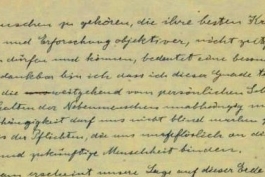 nschen zu gehören, die ihre besten Kr
und Erforschung objektiver, nicht zeit
dürfen und können, bedeutet eine beson
dankbar bin ich dass ich dieser Gnade t
die weitgehend vom persönlichen
der Nebenmenschen unabhängig m
hängigkeit darf uns nicht blind machen
die Pflichten, die uns
und zukünftige Menschheit binden.
erscheint unsere Lage auf dieser Erde